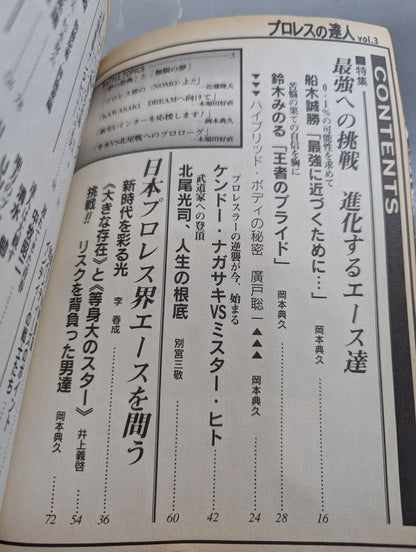 プロレスの達人 vol.3
CONTENTS
■特集
最強への挑戦 進化するエース達
0・1%の可能性を求めて
船木誠勝「最強に近づくために…」 岡本典久 16
苦戦の果ての自信を胸に
鈴木みのる「王者のプライド」 岡本典久 28
▼▼▼ハイブリッド・ボディの秘密 廣戸聡一▲▲▲ 岡本典久 24
プロレスラーの逆襲が今、始まる
ケンドー・ナガサキVSミスター・ヒト 42
武道家への登頂
北尾光司、人生の根底 別宮三敬 60
日本プロレス界エースを問う
新時代を彩る光 李 春成 36
《大きな存在》と《等身大のスター》 井上義啓 54
挑戦!! リスクを背負った男達 岡本典久 72
BATTLE TOPICS 3
「夢の祭典」と「無限の夢」 近藤隆夫
プロレス界の〈NOMO〉よ!!
「KAWASAKI DREAMへ向けて」 木場田好直
「新生Uインターを応援します!」 岡本典久
「冬木VS北尾戦へのプロローグ」 木場田好直